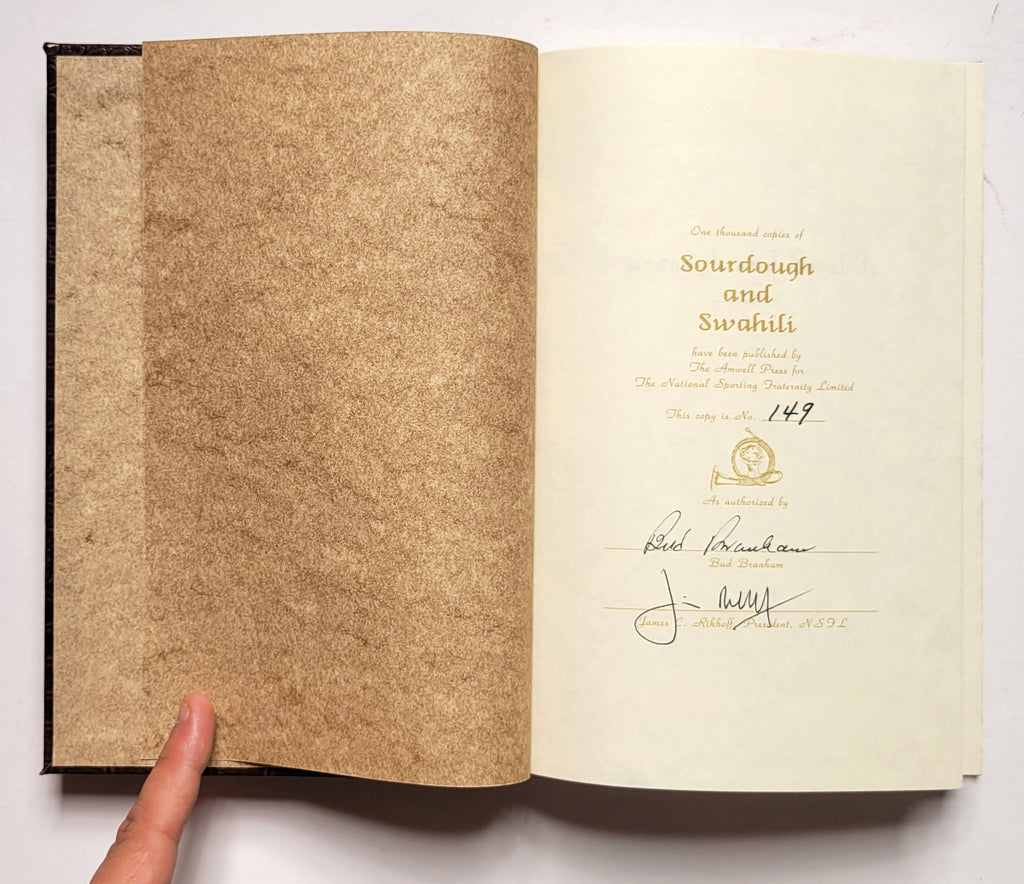 One thousand copies of
Sourdough
and
Swahili
have been published by
The Amwell Press for
The National Sporting Fraternity Limited
This copy is No. 149
As authorized by
Bud Branham
Bud Branham
Jim
James C. Rikhoff, President, NSFL